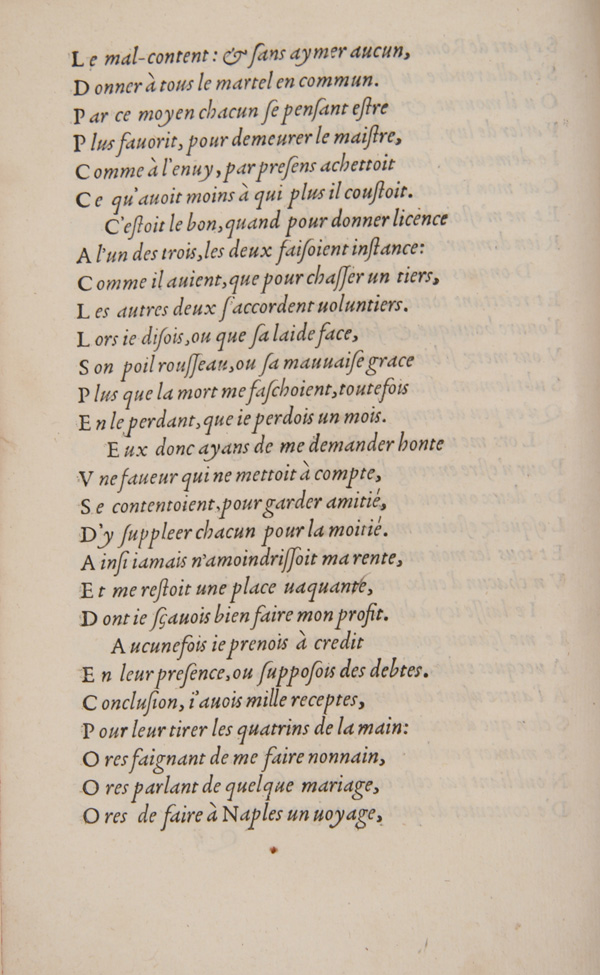 Le mal-content: & ſans aymer aucun,
Donner à tous le martel en commun.
Par ce moyen chacun ſe penſant eſtre
Plus fauorit, pour demeurer le maiſtre,
Comme à l'enuy, par preſens achettoit
Ce qu'auoit moins à qui plus il couſtoit.
C'eſtoit le bon, quand pour donner licence
A l'un des trois, les deux faiſoient inſtance:
Comme il auient, que pour chaſſer un tiers,
Les autres deux ſ'accordent uoluntiers.
Lors ie diſois, ou que ſa laide face,
Son poil rouſſeau, ou ſa mauuaiſe grace
Plus que la mort me faſchoient, toutefois
En le perdant, que ie perdois un mois.
Eux donc ayans de me demander honte
Vne faueur qui ne mettoit à compte,
Se contentoient, pour garder amitié,
D'y ſuppleer chacun pour la moitié.
Ainſi iamais n'amoindriſſoit ma rente,
Et me reſtoit une place uaquante,
Dont ie ſçauois bien faire mon profit.
Aucunefois ie prenois à credit
En leur preſence, ou ſuppoſois des debtes.
Concluſion, i'auois mille receptes,
Pour leur tirer les quatrins de la main:
Ores faignant de me faire nonnain,
Ores parlant de quelque mariage,
Ores de faire à Naples un uoyage,